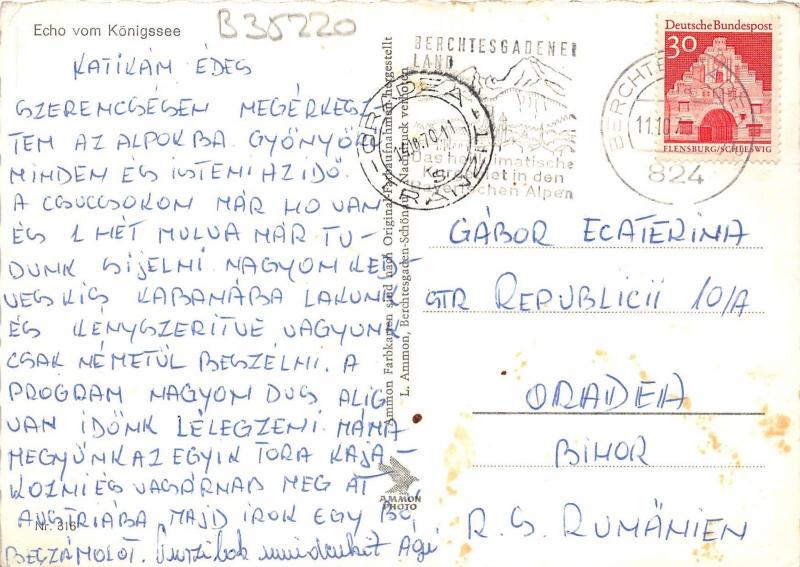 Echo vom Königssee
B35220
KATIKÁM ÉDES
SZERENCSÉSEN MEGÉRKESZ-
TEM AZ ALPOKBA. GYÖNYÖRŰ
MINDEN ÉS ISTENI AZ IDŐ.
A CSUCSOKON MÁR HO VAN
ÉS 1 HÉT MULVA MÁR TU-
DUNK SIJELNI. NAGYON KED-
VES KIS KABANÁBA LAKUNK
ÉS KÉNYSZERITVE VAGYUNK
CSAK NÉMETÜL BESZÉLNI. A
PROGRAM NAGYON DUS ALIG
VAN IDŐNK LÉLEGZENI. MÁMA
MEGYÜNK AZ EGYIK TORA KAJA-
KOZNI ÉS VASÁRNAP MEG ÁT
AUSTRIÁBA. MAJD IROK EGY BŐ
BESZÁMOLOT. Puszilok mindenkit Ági
Nr. 316
Ammon Farbkarten sind nach Original-Farbaufnahmen hergestellt
L. Ammon, Berchtesgaden-Schönau Nachdruck verboten
AMMON
PHOTO
BERCHTESGADENER
LAND
Das heilklimatische
Kurgebiet in den
bayerischen Alpen
ORADEA
11
BERCHTESGADEN
11.10.
824
Deutsche Bundespost
30
FLENSBURG/SCHLESWIG
GÁBOR ECATERINA
STR REPUBLICII 10/A
ORADEA
BIHOR
R. S. RUMÄNIEN